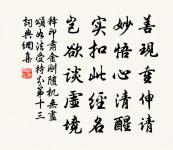 善現重伸請
妙悟心清醒
實扣此經名
豈欲談虛境
釋印肅金剛隨機無盡
頌如法受持分第十三
詞典網集